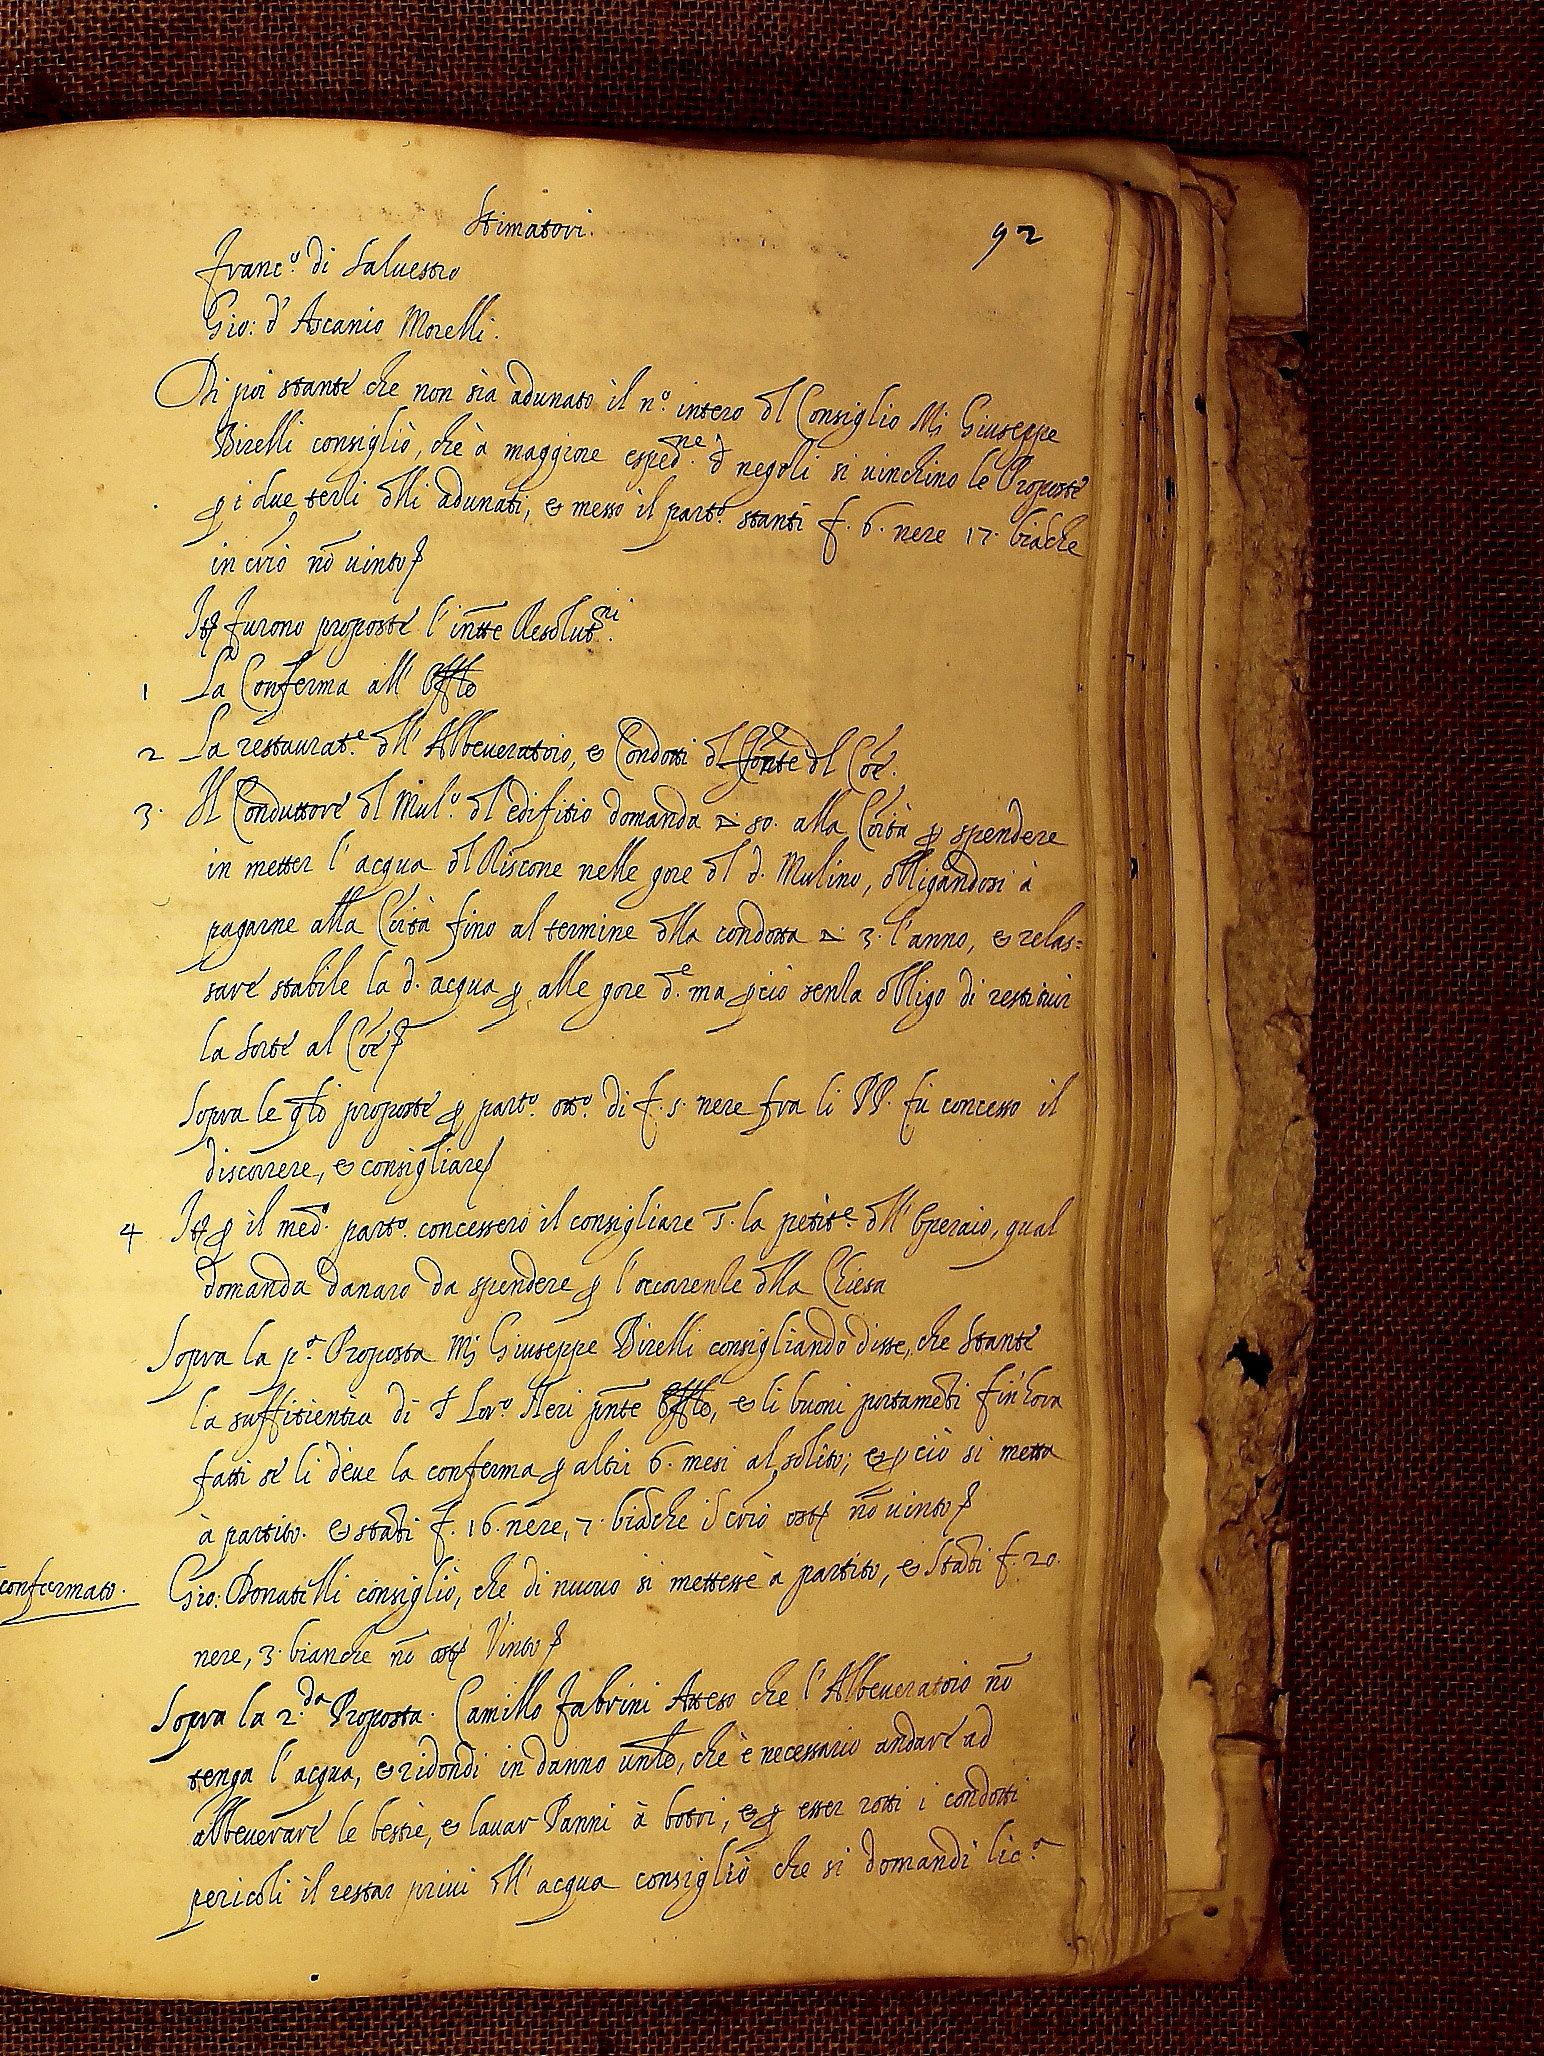 Stimatori.
92
Franc.º di Saluestro
Gio: d' Ascanio Morelli.
Di poi stante che non sia adunato il n.º intero dl Consiglio Mˢ Giuseppe
Birelli consigliò, che à maggiore esped.ne d negoti si uinchino le Proposte
p i due terli dlli adunati, et messo il part.º stanti f. 6. nere 17. biāche
in crio nō uinto
Itͫ furono proposte l' infte Resolut.ni
1 La Conferma all' Offlo
2 La restaurat.e dll' Albeueratoio, et Condotti dl fonte dl Coe.
3. Il Conduttore dl Mul.º dl edifitio domanda 50. alla Coità p spendere
in metter l' acqua dl Riscone nelle gore dl d. Mulino, obligandosi à
pagarne alla Coità fino al termine dlla condotta 3. l'anno, et relas=
sare stabile la d. acqua p alle gore d.e ma pciò senla obligo di restituir
la sorte al Coe
Sopra le qlo proposte p part.º ott.º di f. 5. nere fra li PP. fù concesso il
discorrere, et consigliare
4 Itͫ p il med.º part.º concessero il consigliare s. la petit.e dll' Operaio, qual
domanda danaro da spendere p l'occorrenle dlla Chiesa
Sopra la p.ª Proposta Mˢ Giuseppe Birelli consigliando disse, che stante
la suffitientia di Lor.º Neri pnte Offlo, et li buoni portameti fin'hora
fatti se li deue la conferma p altri 6. mesi al solito; et p ciò si metta
à partito. et stati f. 16. nere, 7. biāche i crio nō uinto
confermato.
Gio: Donatelli consigliò, che di nuouo si mettesse à partito, et stati f. 20.
nere, 3. bianche nō Vinto
Sopra la 2.da Proposta. Camillo Fabrini Atteso che l'Albeueratoio nō
tenga l'acqua, et ridondi in danno unlo, che è necessario andare ad
abbeuerare le bestie, et lauar Panni à botri, et p esser rotti i condotti
pericoli il restar priui dll' acqua consigliò che si domandi lic.ª